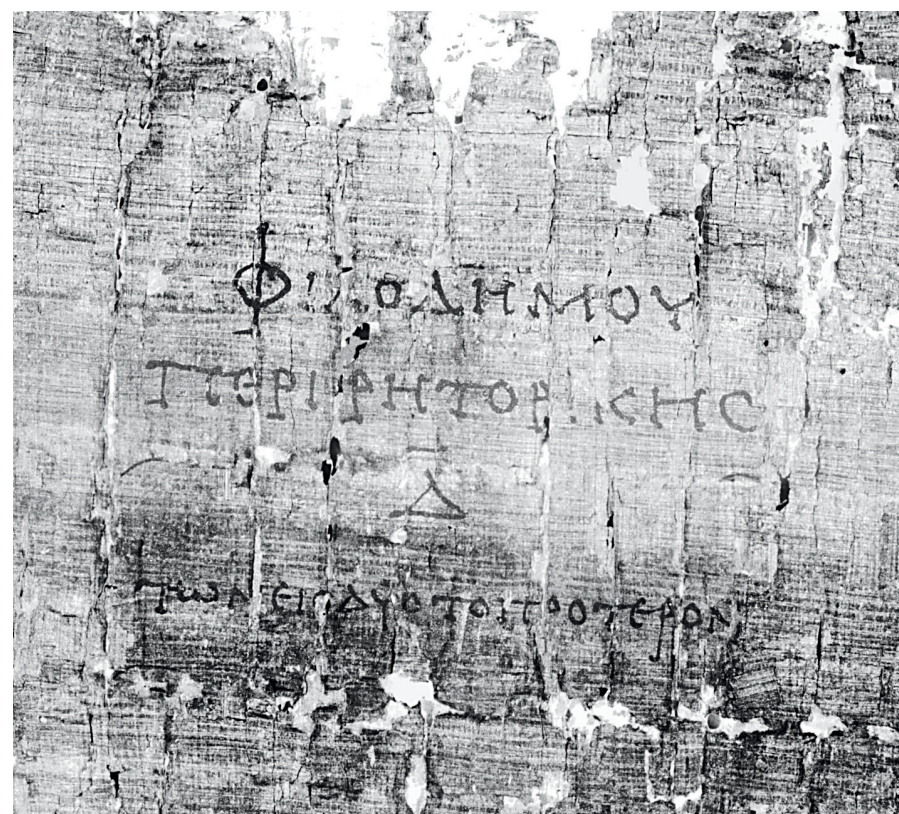 ΦΙΛΟΔΗΜΟΥ
ΠΕΡΙ ΡΗΤΟΡΙΚΗC
Δ̅
ΤΩΝ ΕΙC ΔΥΟ ΤΟ ΠΡΟΤΕΡΟΝ